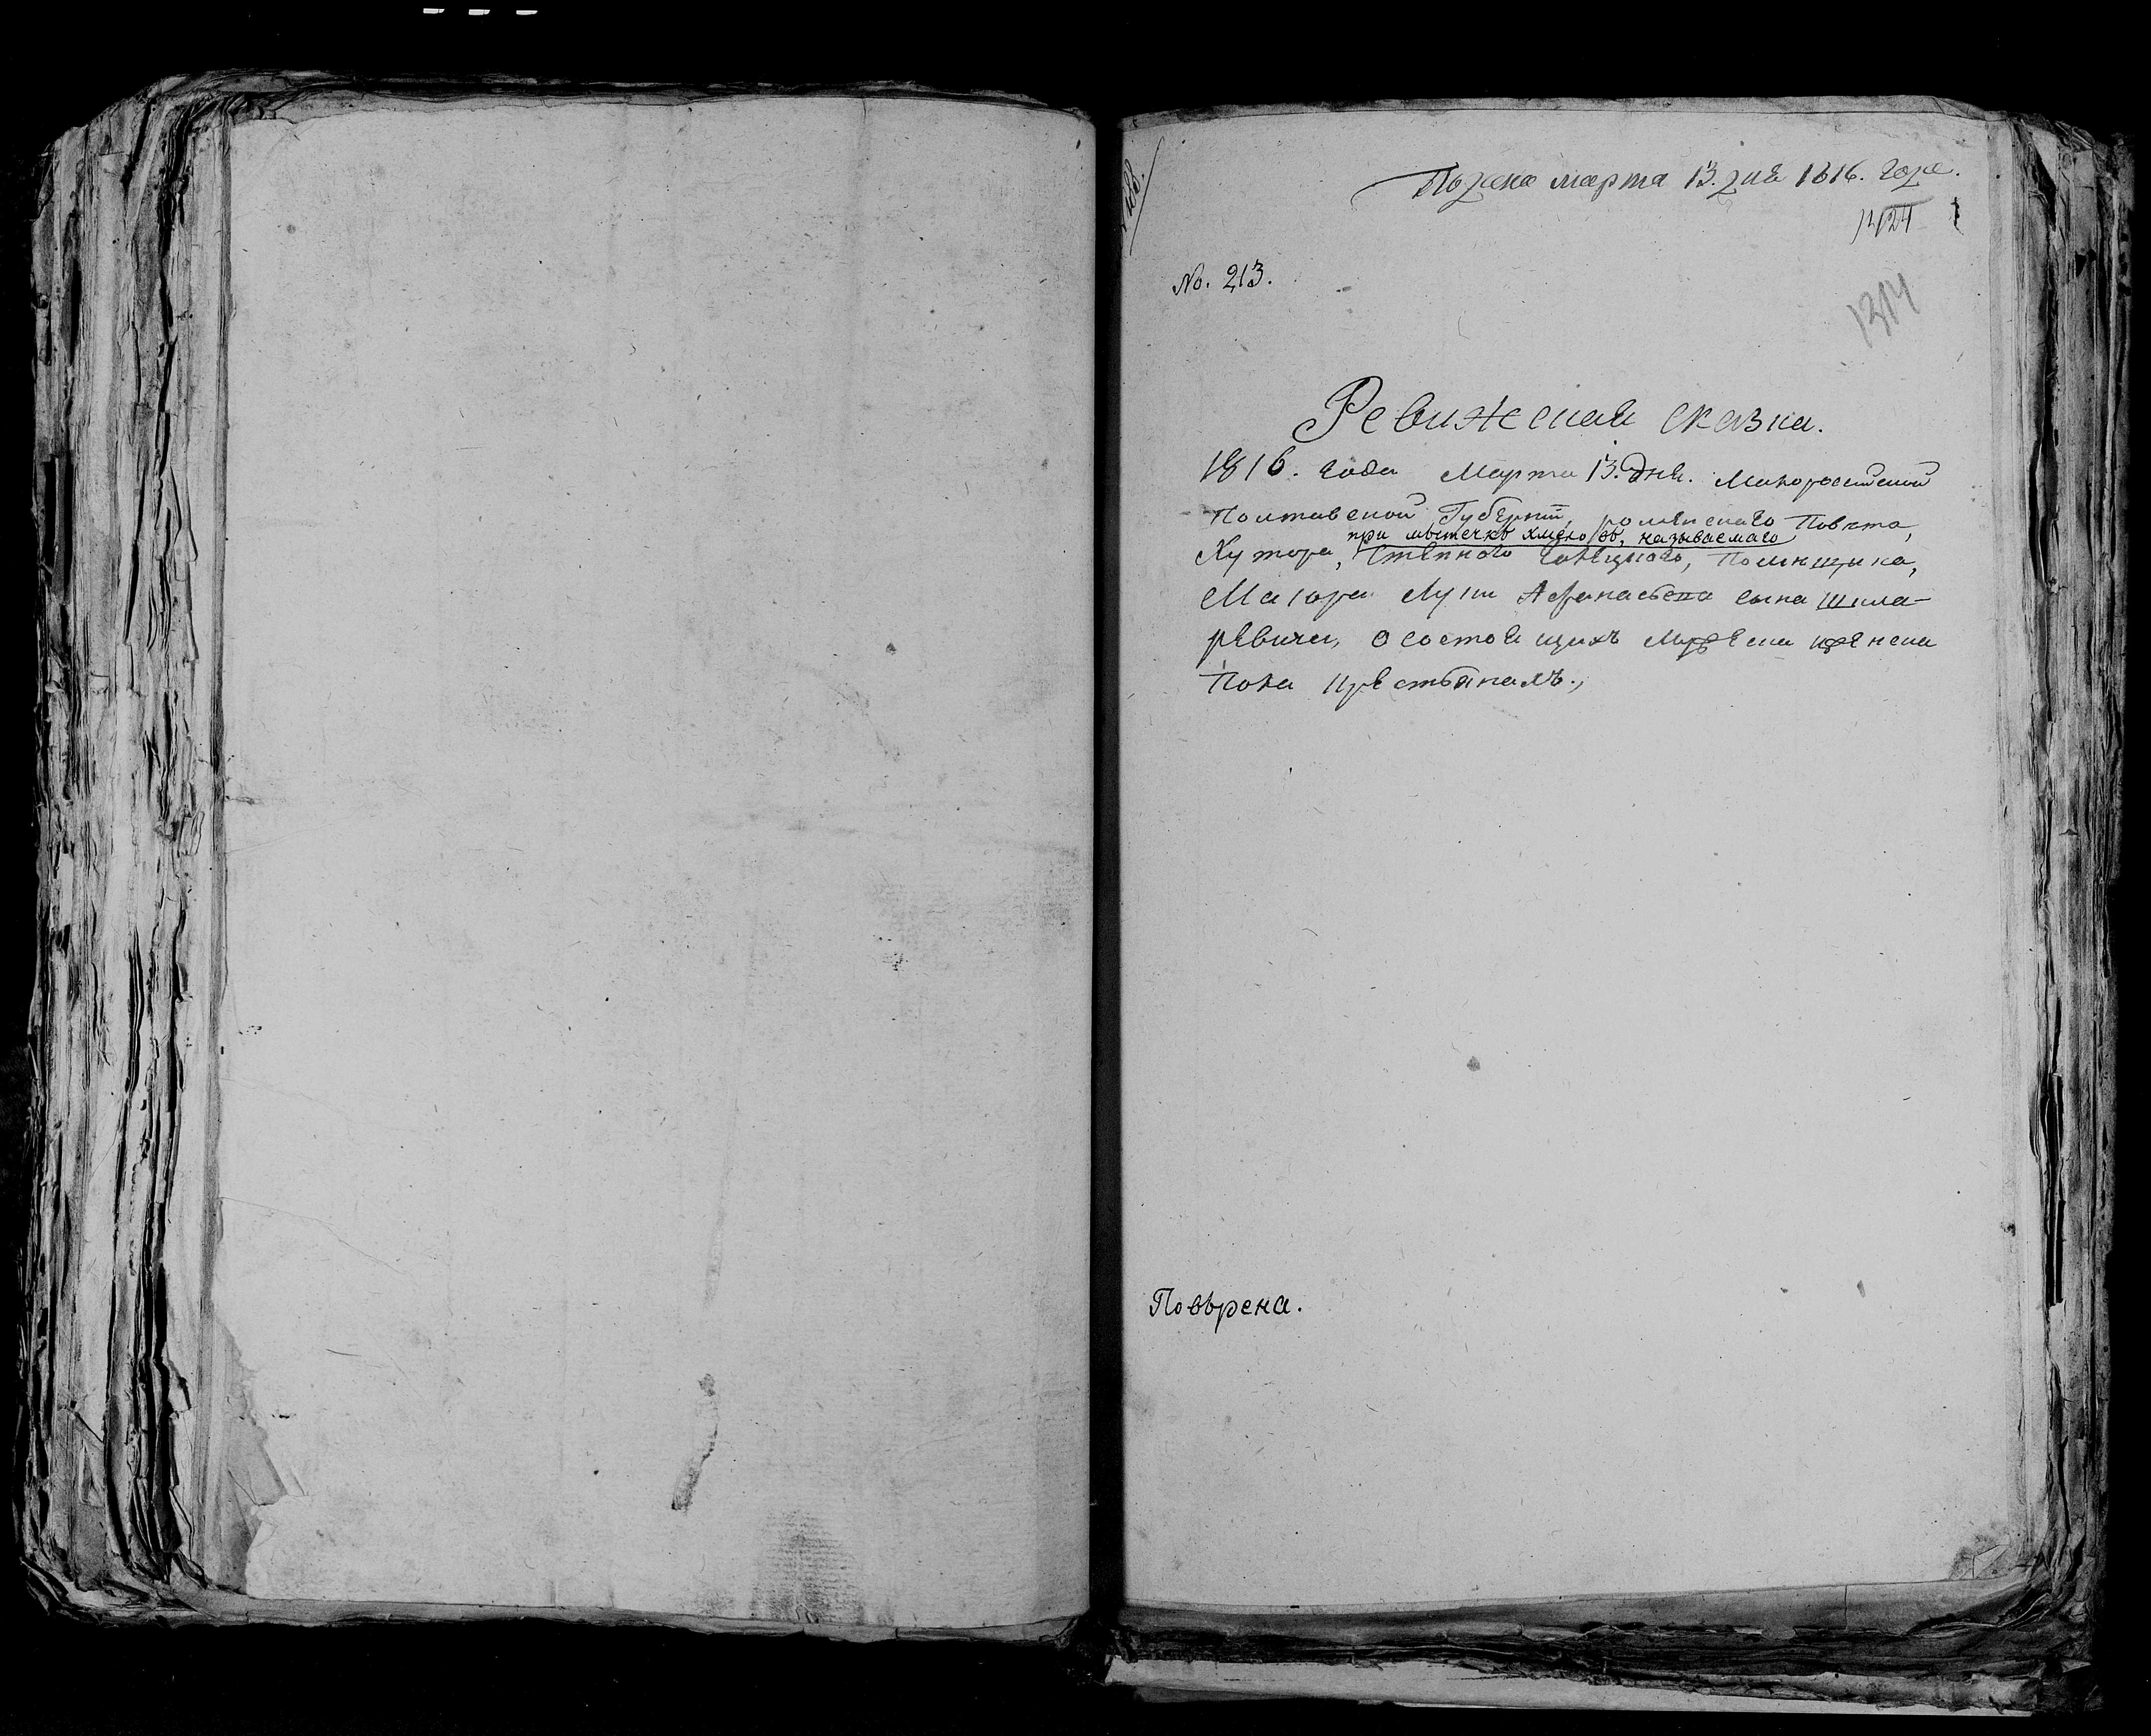 Подана марта 13. дня 1816. года.
1424
No. 213.
1314
Ревижская сказка.
1816. года Марта 13. дня. Малороссийской
Полтавской Губерніи, роменскаго Повѣта,
при мѣстечкѣ Хмеловѣ, называемаго
Хутора, Степного помѣщика,
Маіора Луки Афанасьева сына Шкла-
ревича, о состоящихъ мужеска и женска
пола крестьянахъ.,
Повѣрена.